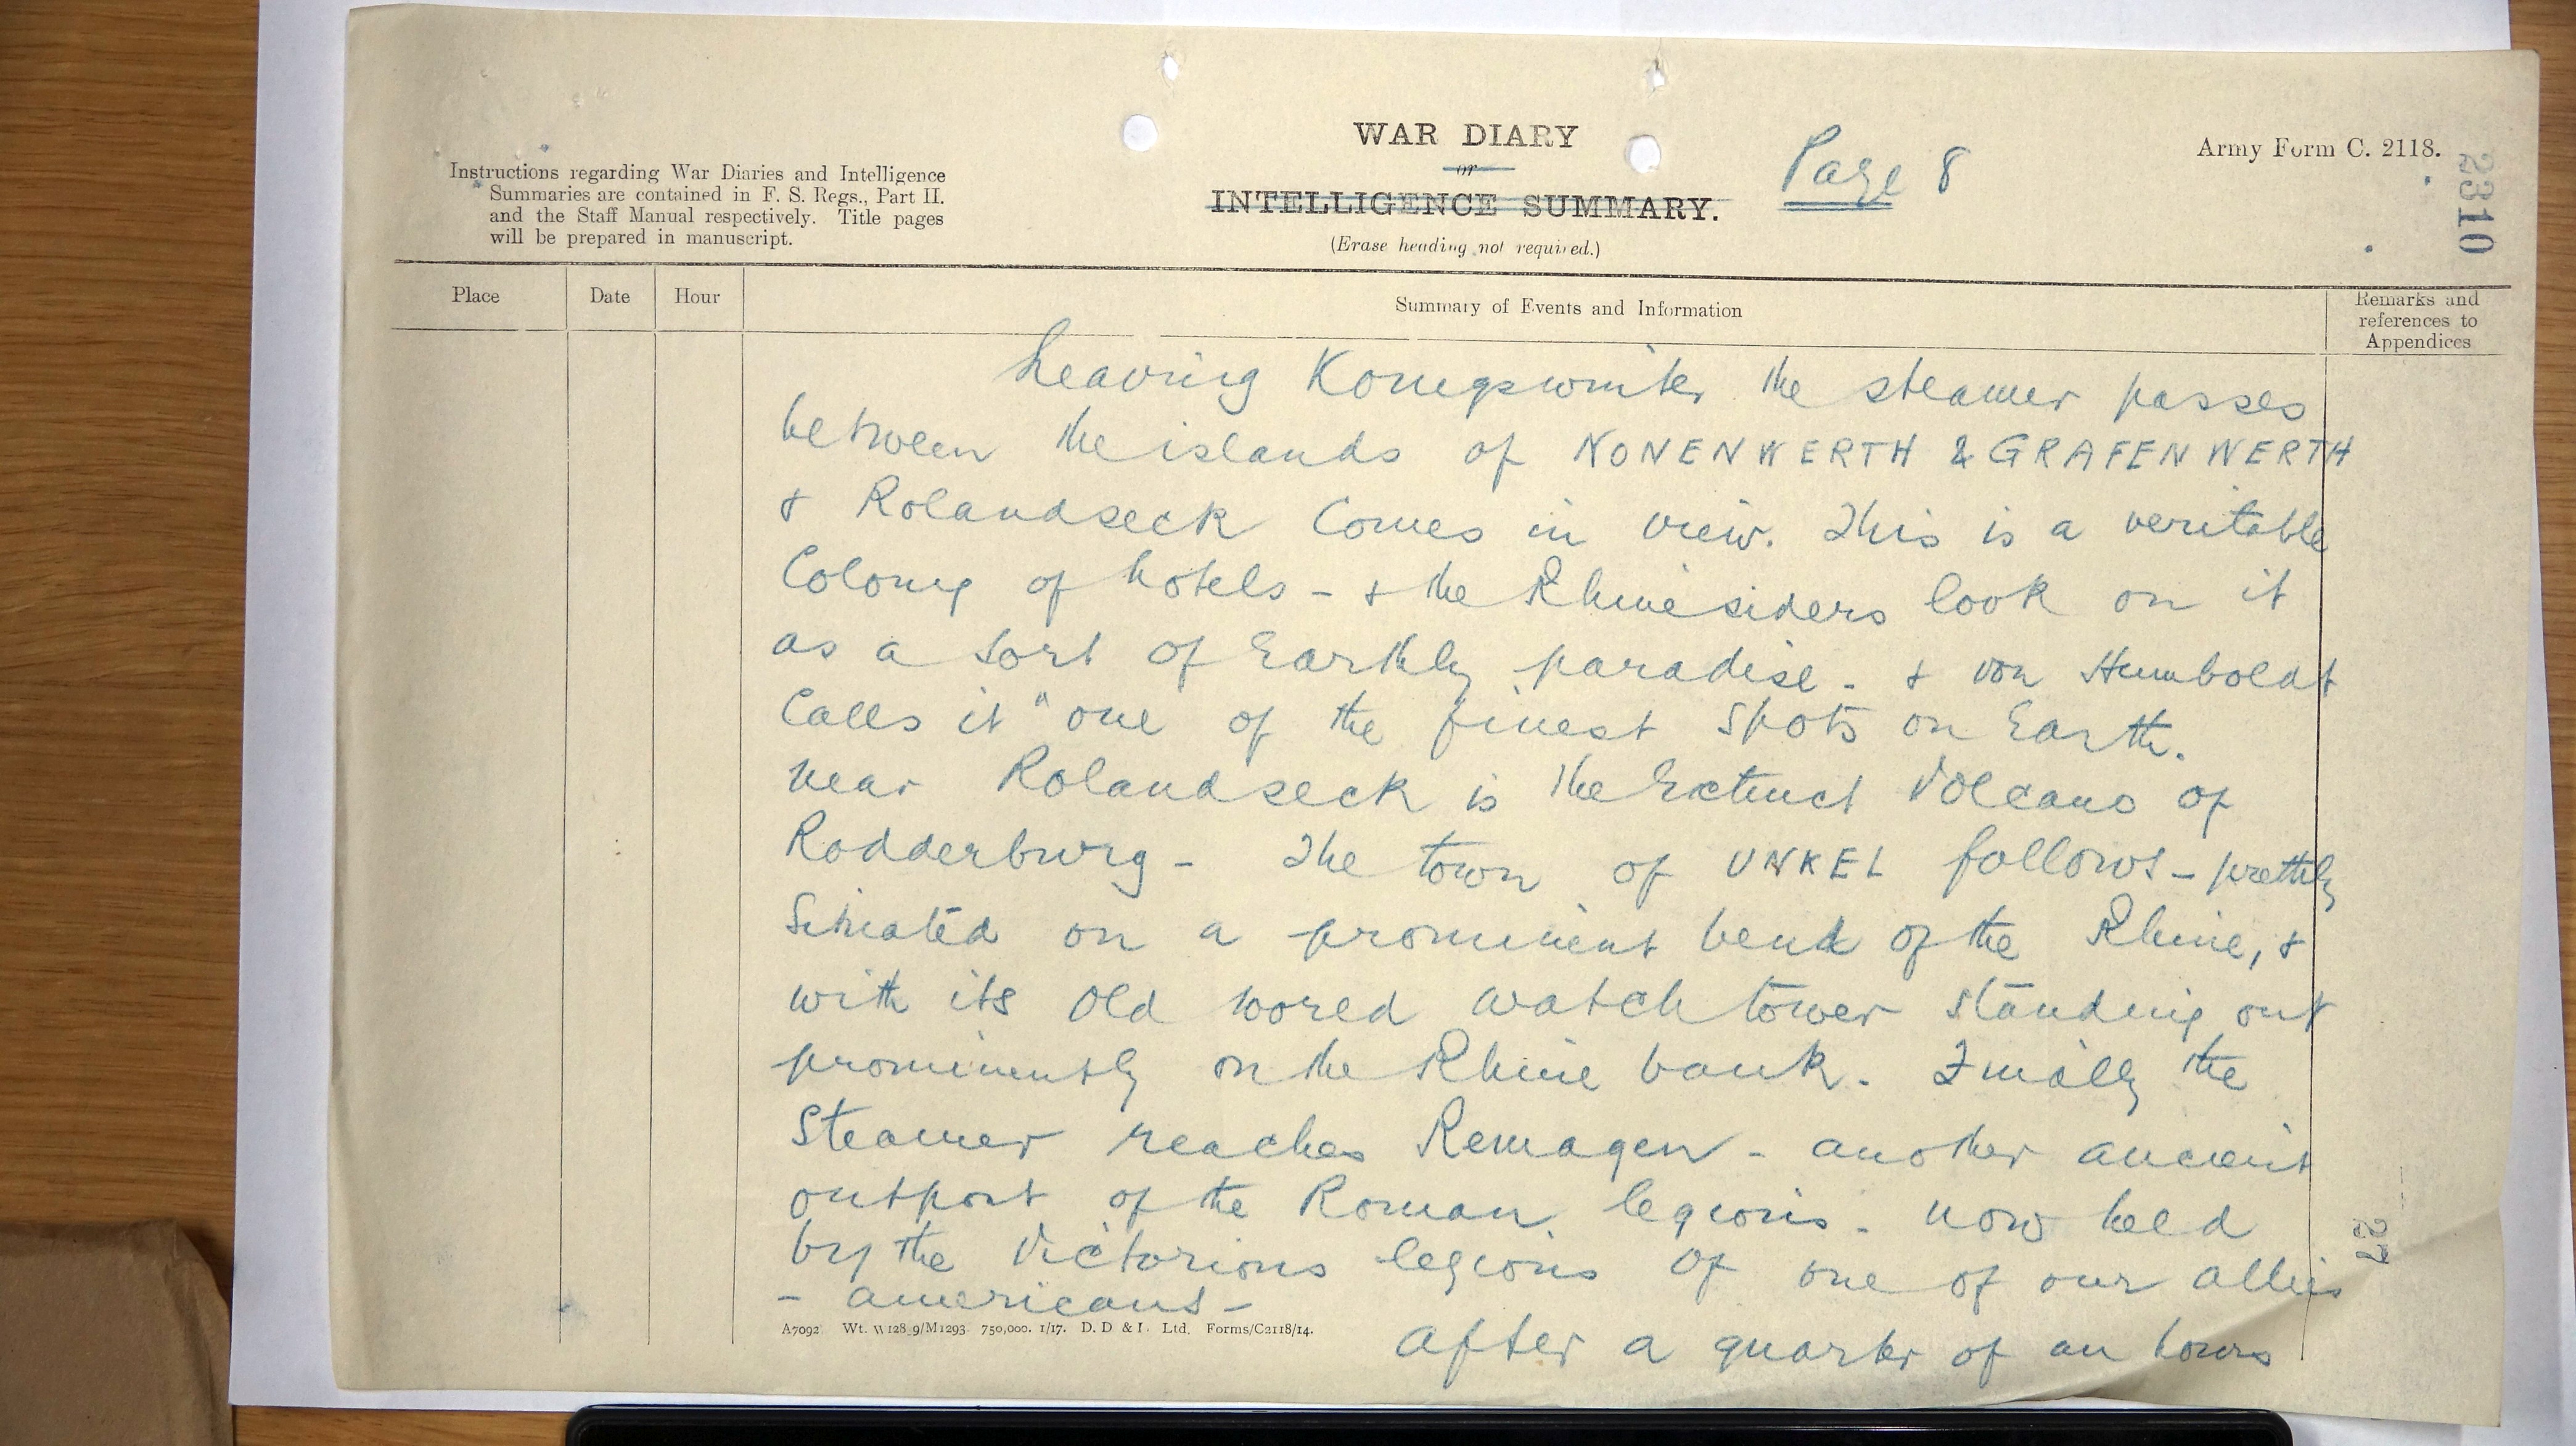 WAR DIARY
or
INTELLIGENCE SUMMARY.
(Erase heading not required.)
Page 8
Army Form C. 2118.
2310
Instructions regarding War Diaries and Intelligence
Summaries are contained in F. S. Regs., Part II.
and the Staff Manual respectively. Title pages
will be prepared in manuscript.
Place
Date
Hour
Summary of Events and Information
Remarks and
references to
Appendices
Leaving Konigswinter the steamer passes
between the islands of NONENWERTH & GRAFENWERTH
& Rolandseck Comes in view. This is a veritable
Colony of hotels - & the Rhinesiders look on it
as a sort of Earthly paradise - & von Humboldt
Calls it "one of the finest spots on Earth.
near Rolandseck is the Extinct Volcano of
Rodderburg - The town of UNKEL follows - prettily
Situated on a prominent bend of the Rhine, &
with its old world watch tower standing out
prominently on the Rhine bank. Finally the
Steamer reaches Remagen - another ancient
outpost of the Roman legions - now held
by the Victorious legions of one of our allies
- americans -
After a quarter of an hours
27
A7092 Wt. W128 9/M1293 750,000. 1/17. D. D & L Ltd. Forms/C2118/14.